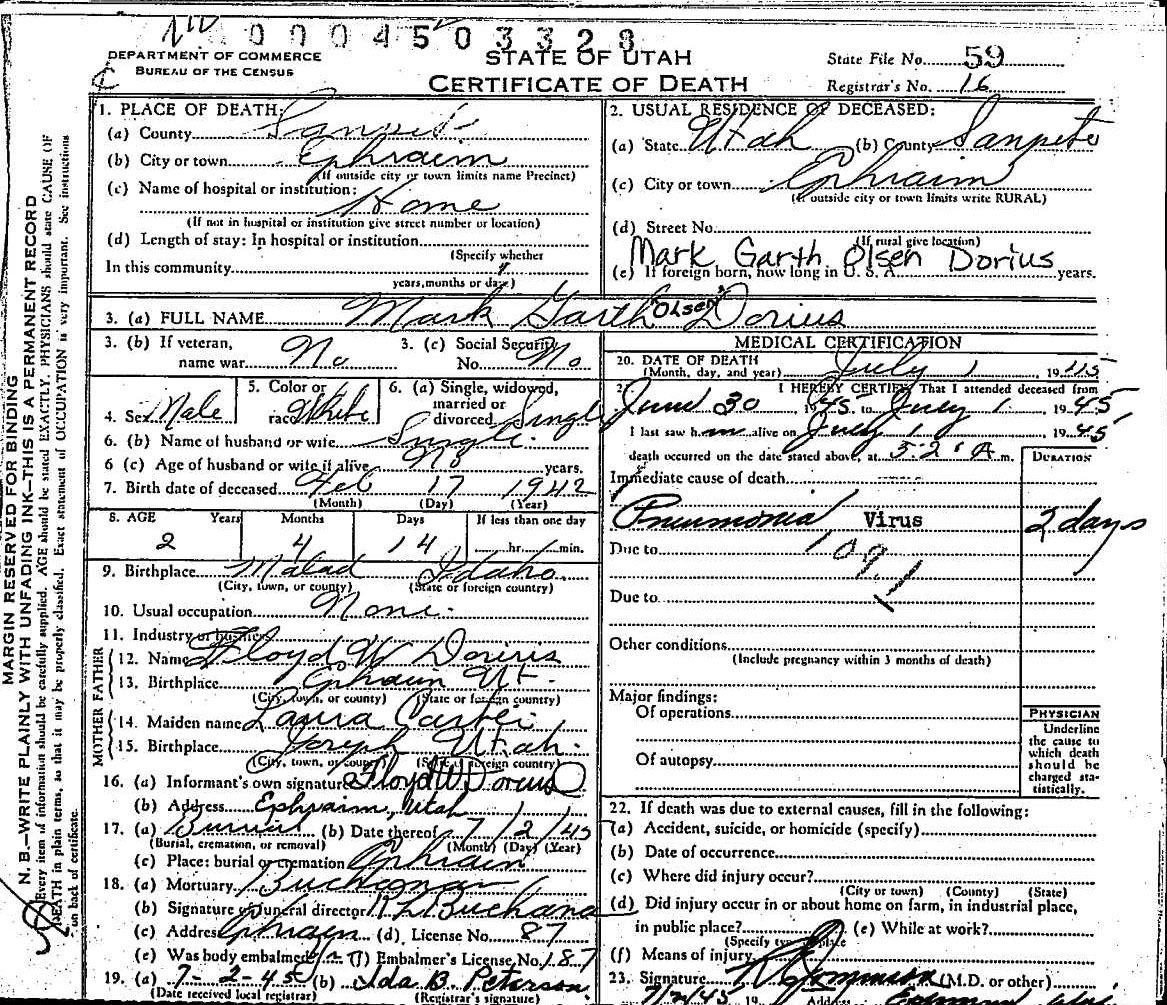 0004503328
DEPARTMENT OF COMMERCE
BUREAU OF THE CENSUS
STATE OF UTAH
CERTIFICATE OF DEATH
State File No. 59
Registrar's No. 16
MARGIN RESERVED FOR BINDING
N. B.—WRITE PLAINLY WITH UNFADING INK—THIS IS A PERMANENT RECORD
Every item of information should be carefully supplied. AGE should be stated EXACTLY. PHYSICIANS should state CAUSE OF
DEATH in plain terms, so that it may be properly classified. Exact statement of OCCUPATION is very important. See instructions
on back of certificate.
1. PLACE OF DEATH:
(a) County
(b) City or town Ephraim
(If outside city or town limits name Precinct)
(c) Name of hospital or institution:
Home
(If not in hospital or institution give street number or location)
(d) Length of stay: In hospital or institution
(Specify whether
In this community
years, months or days)
2. USUAL RESIDENCE OF DECEASED:
(a) State Utah (b) County Sanpete
(c) City or town Ephraim
(If outside city or town limits write RURAL)
(d) Street No.
(If rural give location)
Mark Garth Olsen Dorius
(e) If foreign born, how long in U. S. A. years.
3. (a) FULL NAME Mark Garth "Olsen" Dorius
3. (b) If veteran, name war No
3. (c) Social Security No. No
4. Sex Male
5. Color or race White
6. (a) Single, widowed, married or divorced Single
6. (b) Name of husband or wife Single.
6 (c) Age of husband or wife if alive No years.
7. Birth date of deceased Feb 17 1942
(Month) (Day) (Year)
8. AGE Years Months Days If less than one day
2 4 14 hr. min.
9. Birthplace Malad Idaho.
(City, town, or county) (State or foreign country)
10. Usual occupation None.
11. Industry or business
FATHER
12. Name Floyd W Dorius
13. Birthplace Ephraim Ut.
(City, town, or county) (State or foreign country)
MOTHER
14. Maiden name Laura
15. Birthplace Joseph Utah.
(City, town, or county) (State or foreign country)
16. (a) Informant's own signature Floyd W Dorius
(b) Address Ephraim, Utah
17. (a) Burial (b) Date thereof 7/2/45
(Burial, cremation, or removal) (Month) (Day) (Year)
(c) Place: burial or cremation Ephraim
18. (a) Mortuary Buchanan
(b) Signature of funeral director
(c) Address Ephraim (d) License No. 87
(e) Was body embalmed (f) Embalmer's License No. 187
19. (a) 7-2-45 (b) Ida B. Peterson
(Date received local registrar) (Registrar's signature)
MEDICAL CERTIFICATION
20. DATE OF DEATH
(Month, day, and year) July 1, 1945
21. I HEREBY CERTIFY That I attended deceased from
June 30 1945 to July 1 1945
I last saw him alive on July 1, 1945
death occurred on the date stated above, at m.
DURATION
Immediate cause of death
Pneumonia Virus 2 days
Due to
109.1
Due to
Other conditions
(Include pregnancy within 3 months of death)
Major findings:
Of operations
Of autopsy
PHYSICIAN
Underline
the cause to
which death
should be
charged sta-
tistically.
22. If death was due to external causes, fill in the following:
(a) Accident, suicide, or homicide (specify)
(b) Date of occurrence
(c) Where did injury occur?
(City or town) (County) (State)
(d) Did injury occur in or about home on farm, in industrial place,
in public place? (e) While at work?
(Specify type of place
(f) Means of injury
23. Signature (M.D. or other)
7/2/45 19 Address